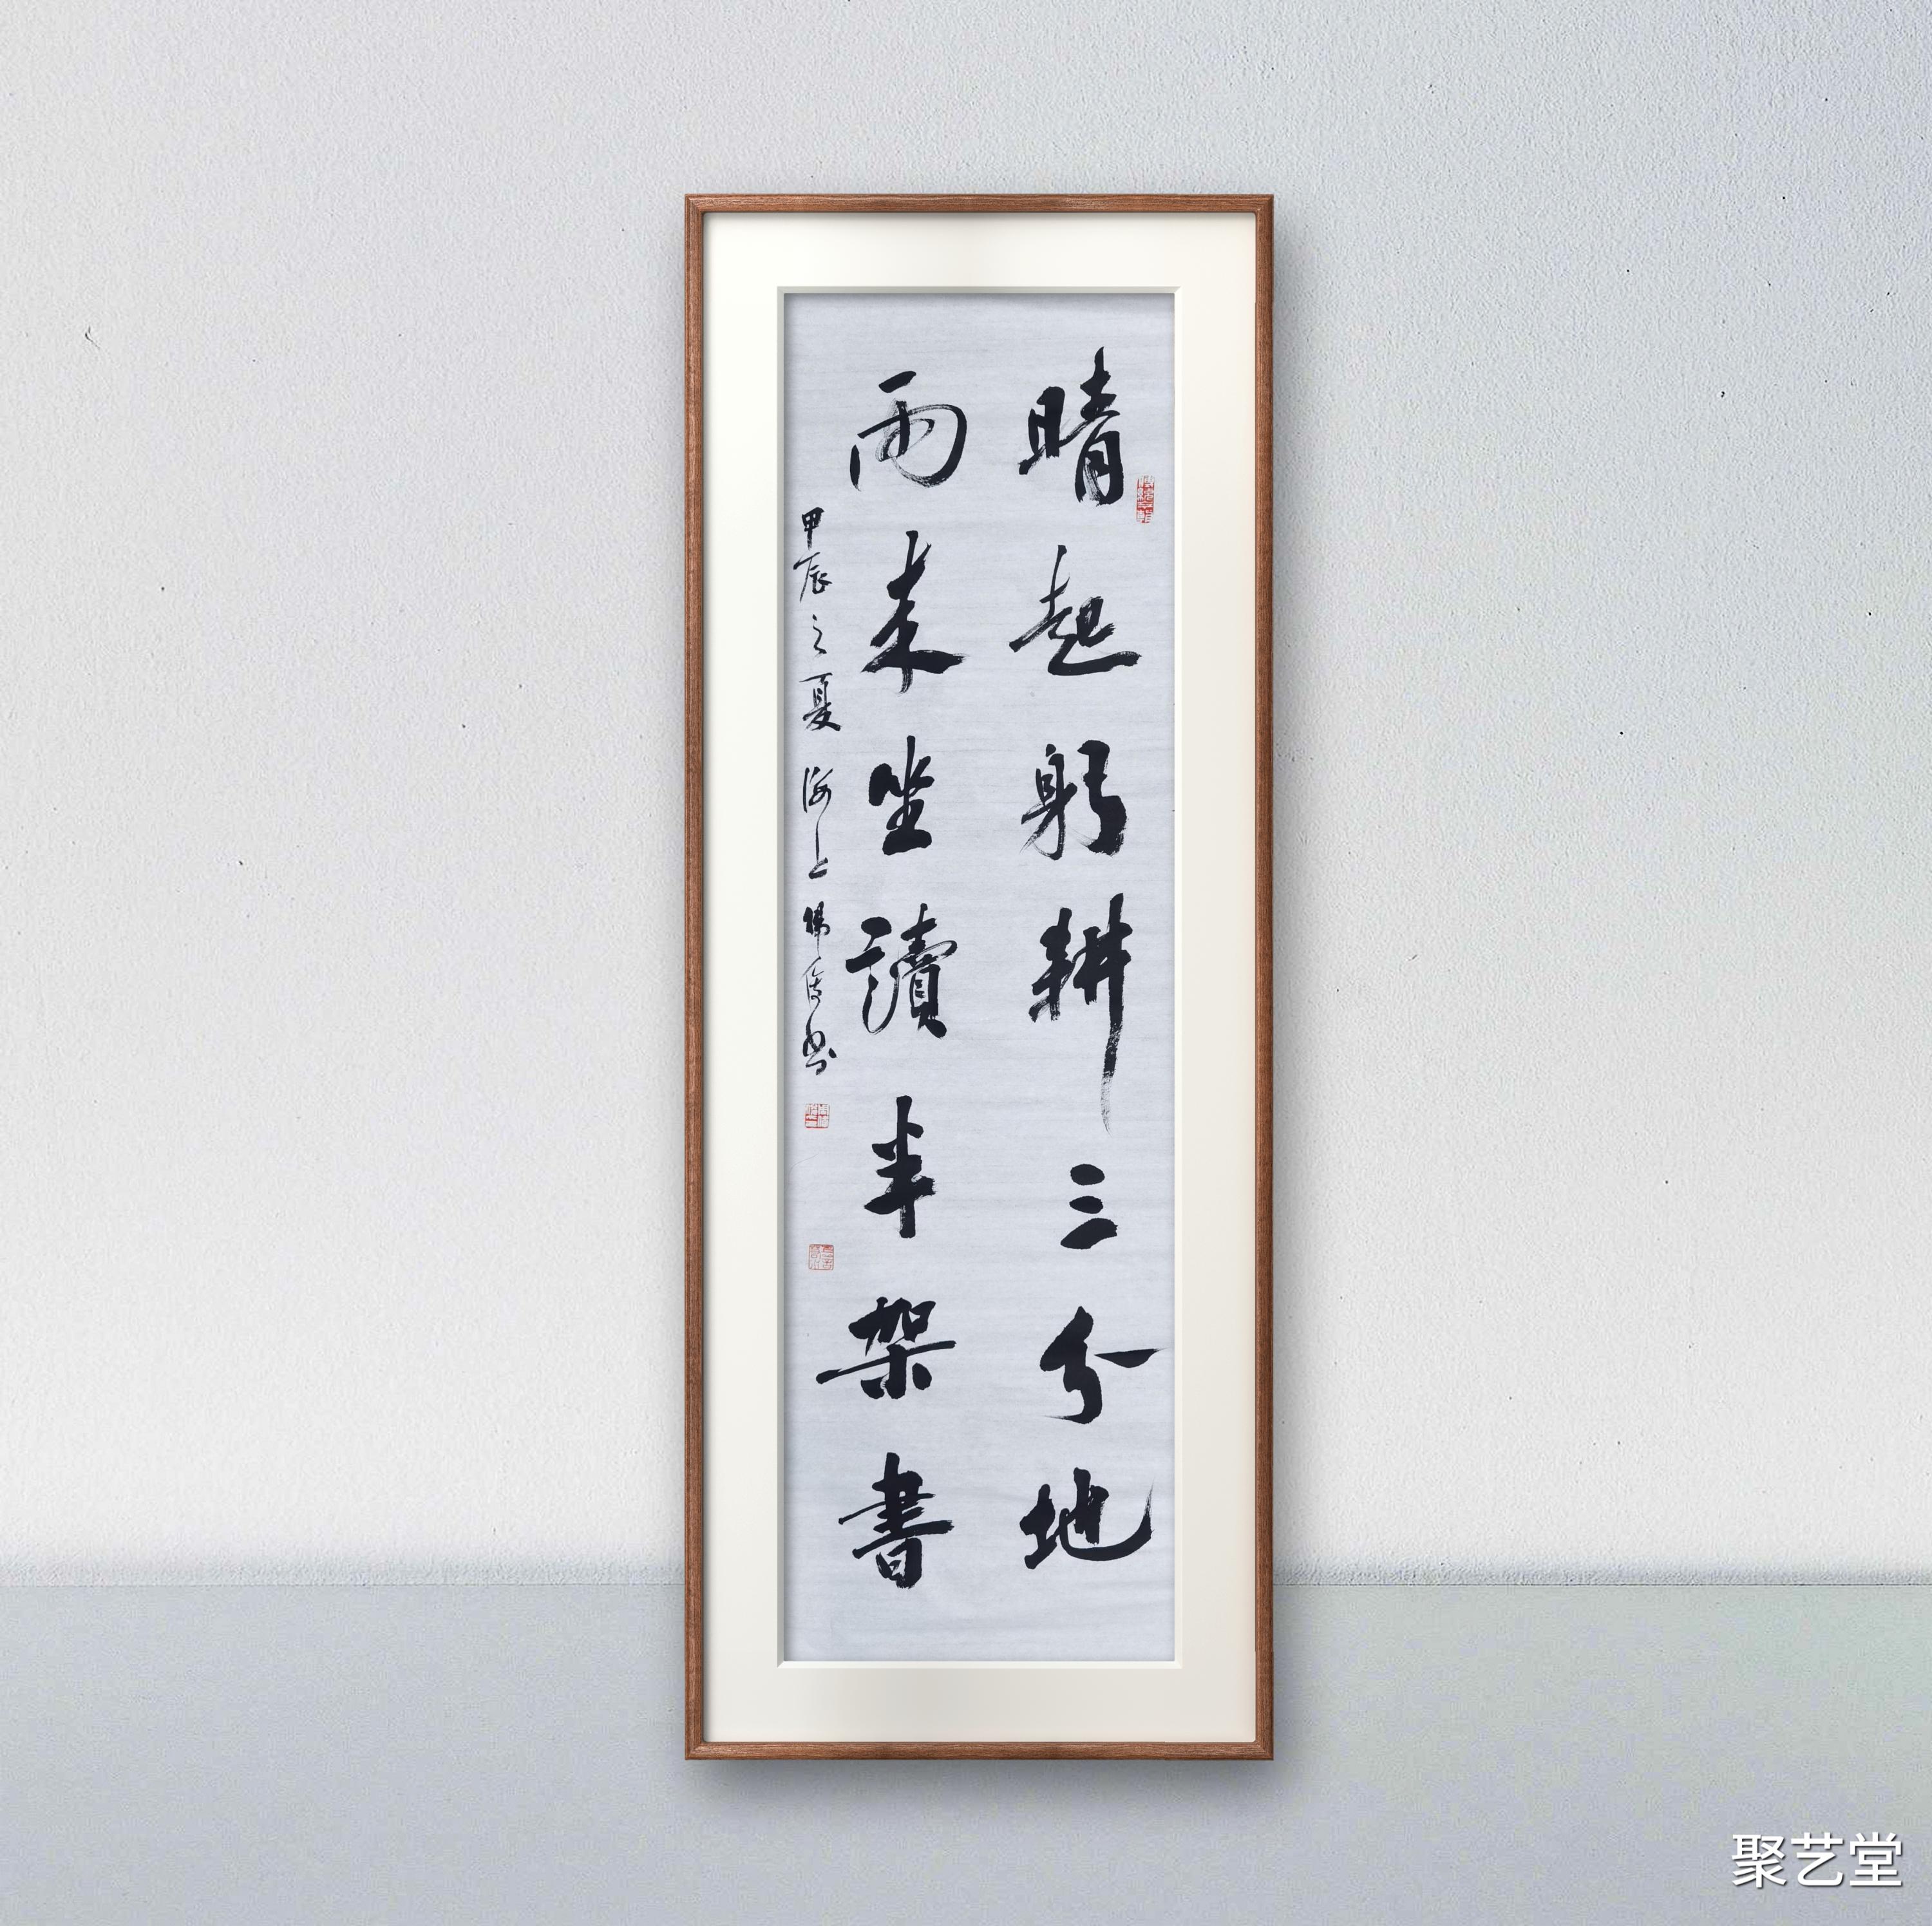 晴起躬耕三分地
雨来坐讀半架書
甲辰之夏海上佛传书
聚艺堂